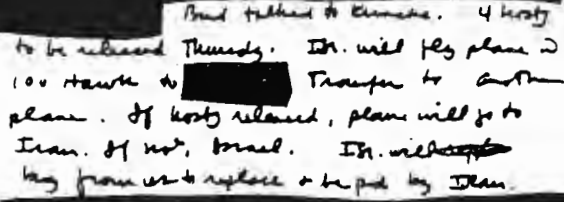 Bud talked to Kimche. 4 hosty
to be released Thursdy. Isr. will fly plane w
100 Hawk to
Transfer to another
plane. If hosty released, plane will go to
Iran. If not, Israel. Isr. will
buy from us to replace & be pd by Iran.